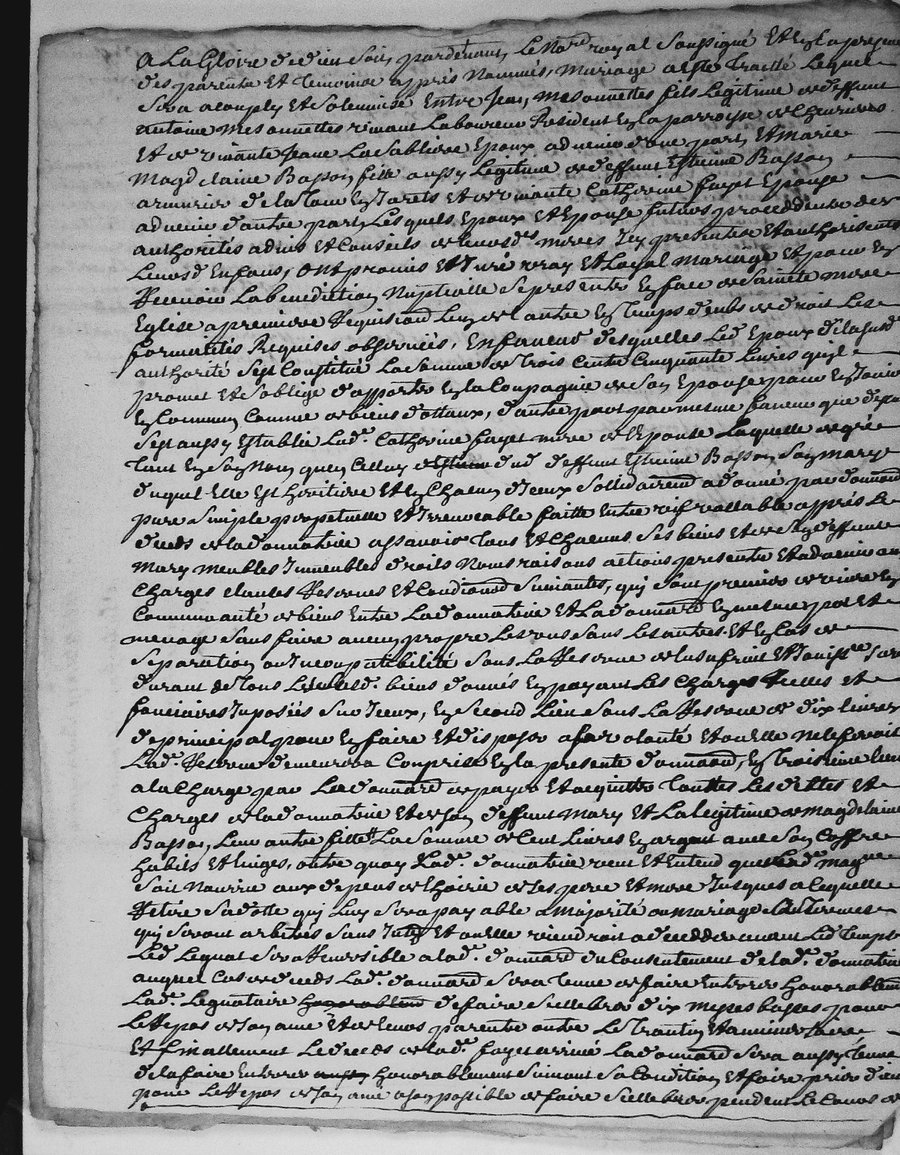 A La Gloire de dieu Soit, pardevant Le No.re royal Soussigné Et En la presence
des parents Et temoins apprés Nommés, Mariage a Este Traitte Lequel
Sera acomply Et Solemnisé Entre Jean Mesonnettes fils Legitime de deffunt
antoine Mesonnettes vivant Laboureur Resident En la parroisse de
Et de vivante Jeane La Sabliere Epoux advenir d'une part, Et Marie
Magdelaine Basson fille aussy Legitime de deffunt Estienne Basson
armurier de la Tour En Jarets Et de vivante Catherine fayet Epouse
advenir d'autre part, Lesquels Epoux Et Epouse futurs procedents des
authorités advis Et Conseils de leurs d. meres Icy presentes Et authorisents
Leurs d. Enfans, Ont promis Et Juré vray Et Loyal Mariage Et pour En
Recevoir La benediction Nuptialle Se presenter En face de Sainte mere
Eglise a premiere Requisiond Lun de Lautre En Temps d'eubs de droit Les
formalités Requises observées, En faveur desquelles Led. Epoux de la susd.
authorité Sest Constitué La Somme de Trois Cents Cinquante Livres quil
promet Et S'oblige d'apporter En la Compagnie de Son Epouse pour En Jouir
En Commun Comme de biens dottaux, d'autre part par mesme faveur que dessus
Sest aussy Establie Lad. Catherine fayet mere de l'Epouse Laquelle de gré
Tant En Son Nom, quen Celluy dud. deffunt Estienne Basson Son Mary
duquel Elle Est heritiere Et En Chacun d'iceux Solidairemd a donné par donnaond
pure Simple perpetuelle Et Irrevocable faitte Entre vifs vallable appres Le
deceds de la donnatrice assavoir Tous Et Chacuns Ses biens Et de Son deffunt
Mary meubles Immeubles droits Noms raisons actions presents Et advenir aux
Charges Clauses Reserves Et Condiaond Suivantes, qui Sont premier de vivre En
Communauté de biens Entre La donnatrice Et La donnaad En mesme pot Et
menage Sans faire aucun propre Les uns Sans Les autres Et En Cas de
Separation ou Incopatibilité Sous La Reserve de Lusufruit Et Jouiss.ce Sa vie
durant de Tous Lesd. biens donnés En payant Les Charges Reelles Et
fonciaires Imposées Sur Iceux, En Second Lieu Sous La Reserve de dix Livres
de principal pour En faire Et disposer a sa volonté Et ou Elle Ne le feroit
Lad. Reserve demeurera Comprise En la presente donnaond, En Troisieme lieu
a la Charge par La donnaad de payer Et acquitter Touttes Les dettes Et
Charges de la donnatrice Et de Son deffunt Mary Et La legitime de Magdelaine
Basson, Leur autre fille La Somme de Cent Livres En argent avec Son Coffre
habits Et Linges, outre quoy Lad. donnatrice veut Et Entend que Lad. magne
Soit Nourrie aux depens de Lhoirie de Ses pere Et mere Jusques a Ce quelle
Retire Sa dotte qui Luy Sera payable a Majorité ou Mariage aux Termes
qui Seront arbitrés Sans Interests Et ou elle viendroit a deceder avant Led. Temps
Led. Leguat Sera Reversible a lad. donnaad du Consentement de lad. donnatrice
auquel Cas de deceds Lad. donnaad Sera Tenue de faire Enterrer honorablement
Lad. Leguataire de faire Cellebrer dix messes basses pour
Le Repos de Son ame Et de Leurs parents outre Le Trantin Et
Et finallement Le deceds de lad. fayet arrivé La donnaad Sera aussy Tenue
de la faire Enterrer honorablement Suivant Sa Condition Et faire prier dieu
pour Le Repos de Son ame possible de faire Cellebrer pendent Le Cours de